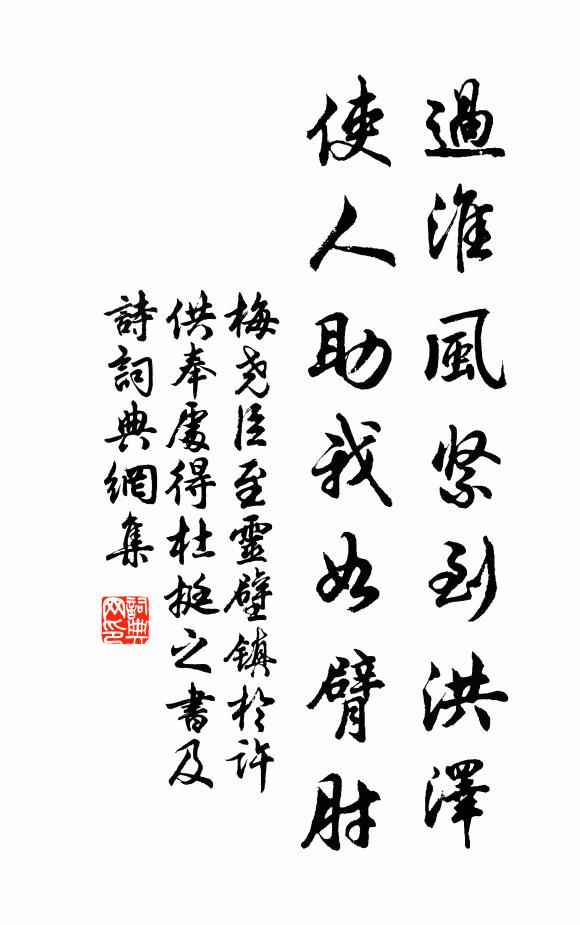 過淮風緊到洪澤
使人助我如臂肘
梅堯臣至靈壁鎮於許
供奉處得杜挺之書及
詩詞典網集
詞典
网印